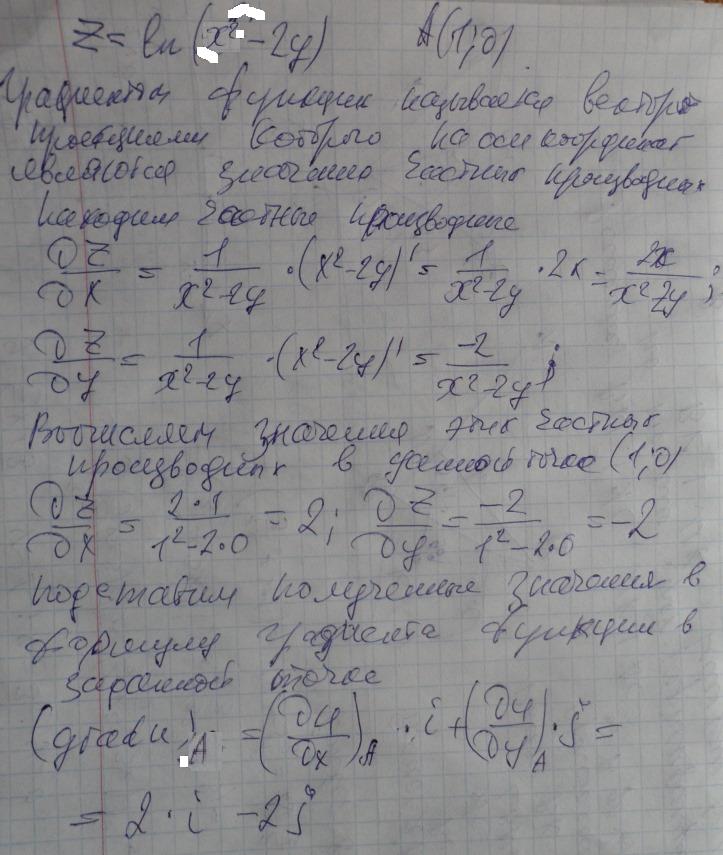 Z = ln(x² - 2y)   A(1;0)
Градиентом функции называется вектор
проекциями которого на оси координат
являются значения частных производных
Находим частные производные
∂Z/∂x = 1/(x²-2y) · (x²-2y)' = 1/(x²-2y) · 2x = 2x/(x²-2y);
∂Z/∂y = 1/(x²-2y) · (x²-2y)' = -2/(x²-2y);
Вычисляем значения этих частных
производных в данной точке (1;0)
∂Z/∂x = 2·1/(1²-2·0) = 2; ∂Z/∂y = -2/(1²-2·0) = -2
подставим полученные значения в
формулу градиента функции в
заданной точке
(grad u)_A = (∂u/∂x)_A · i + (∂u/∂y)_A · j =
= 2·i - 2j